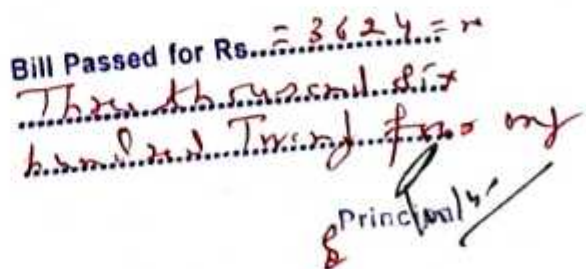 Bill Passed for Rs. = 3624 = 
Three thousand Six
hundred Twenty four only
Principal